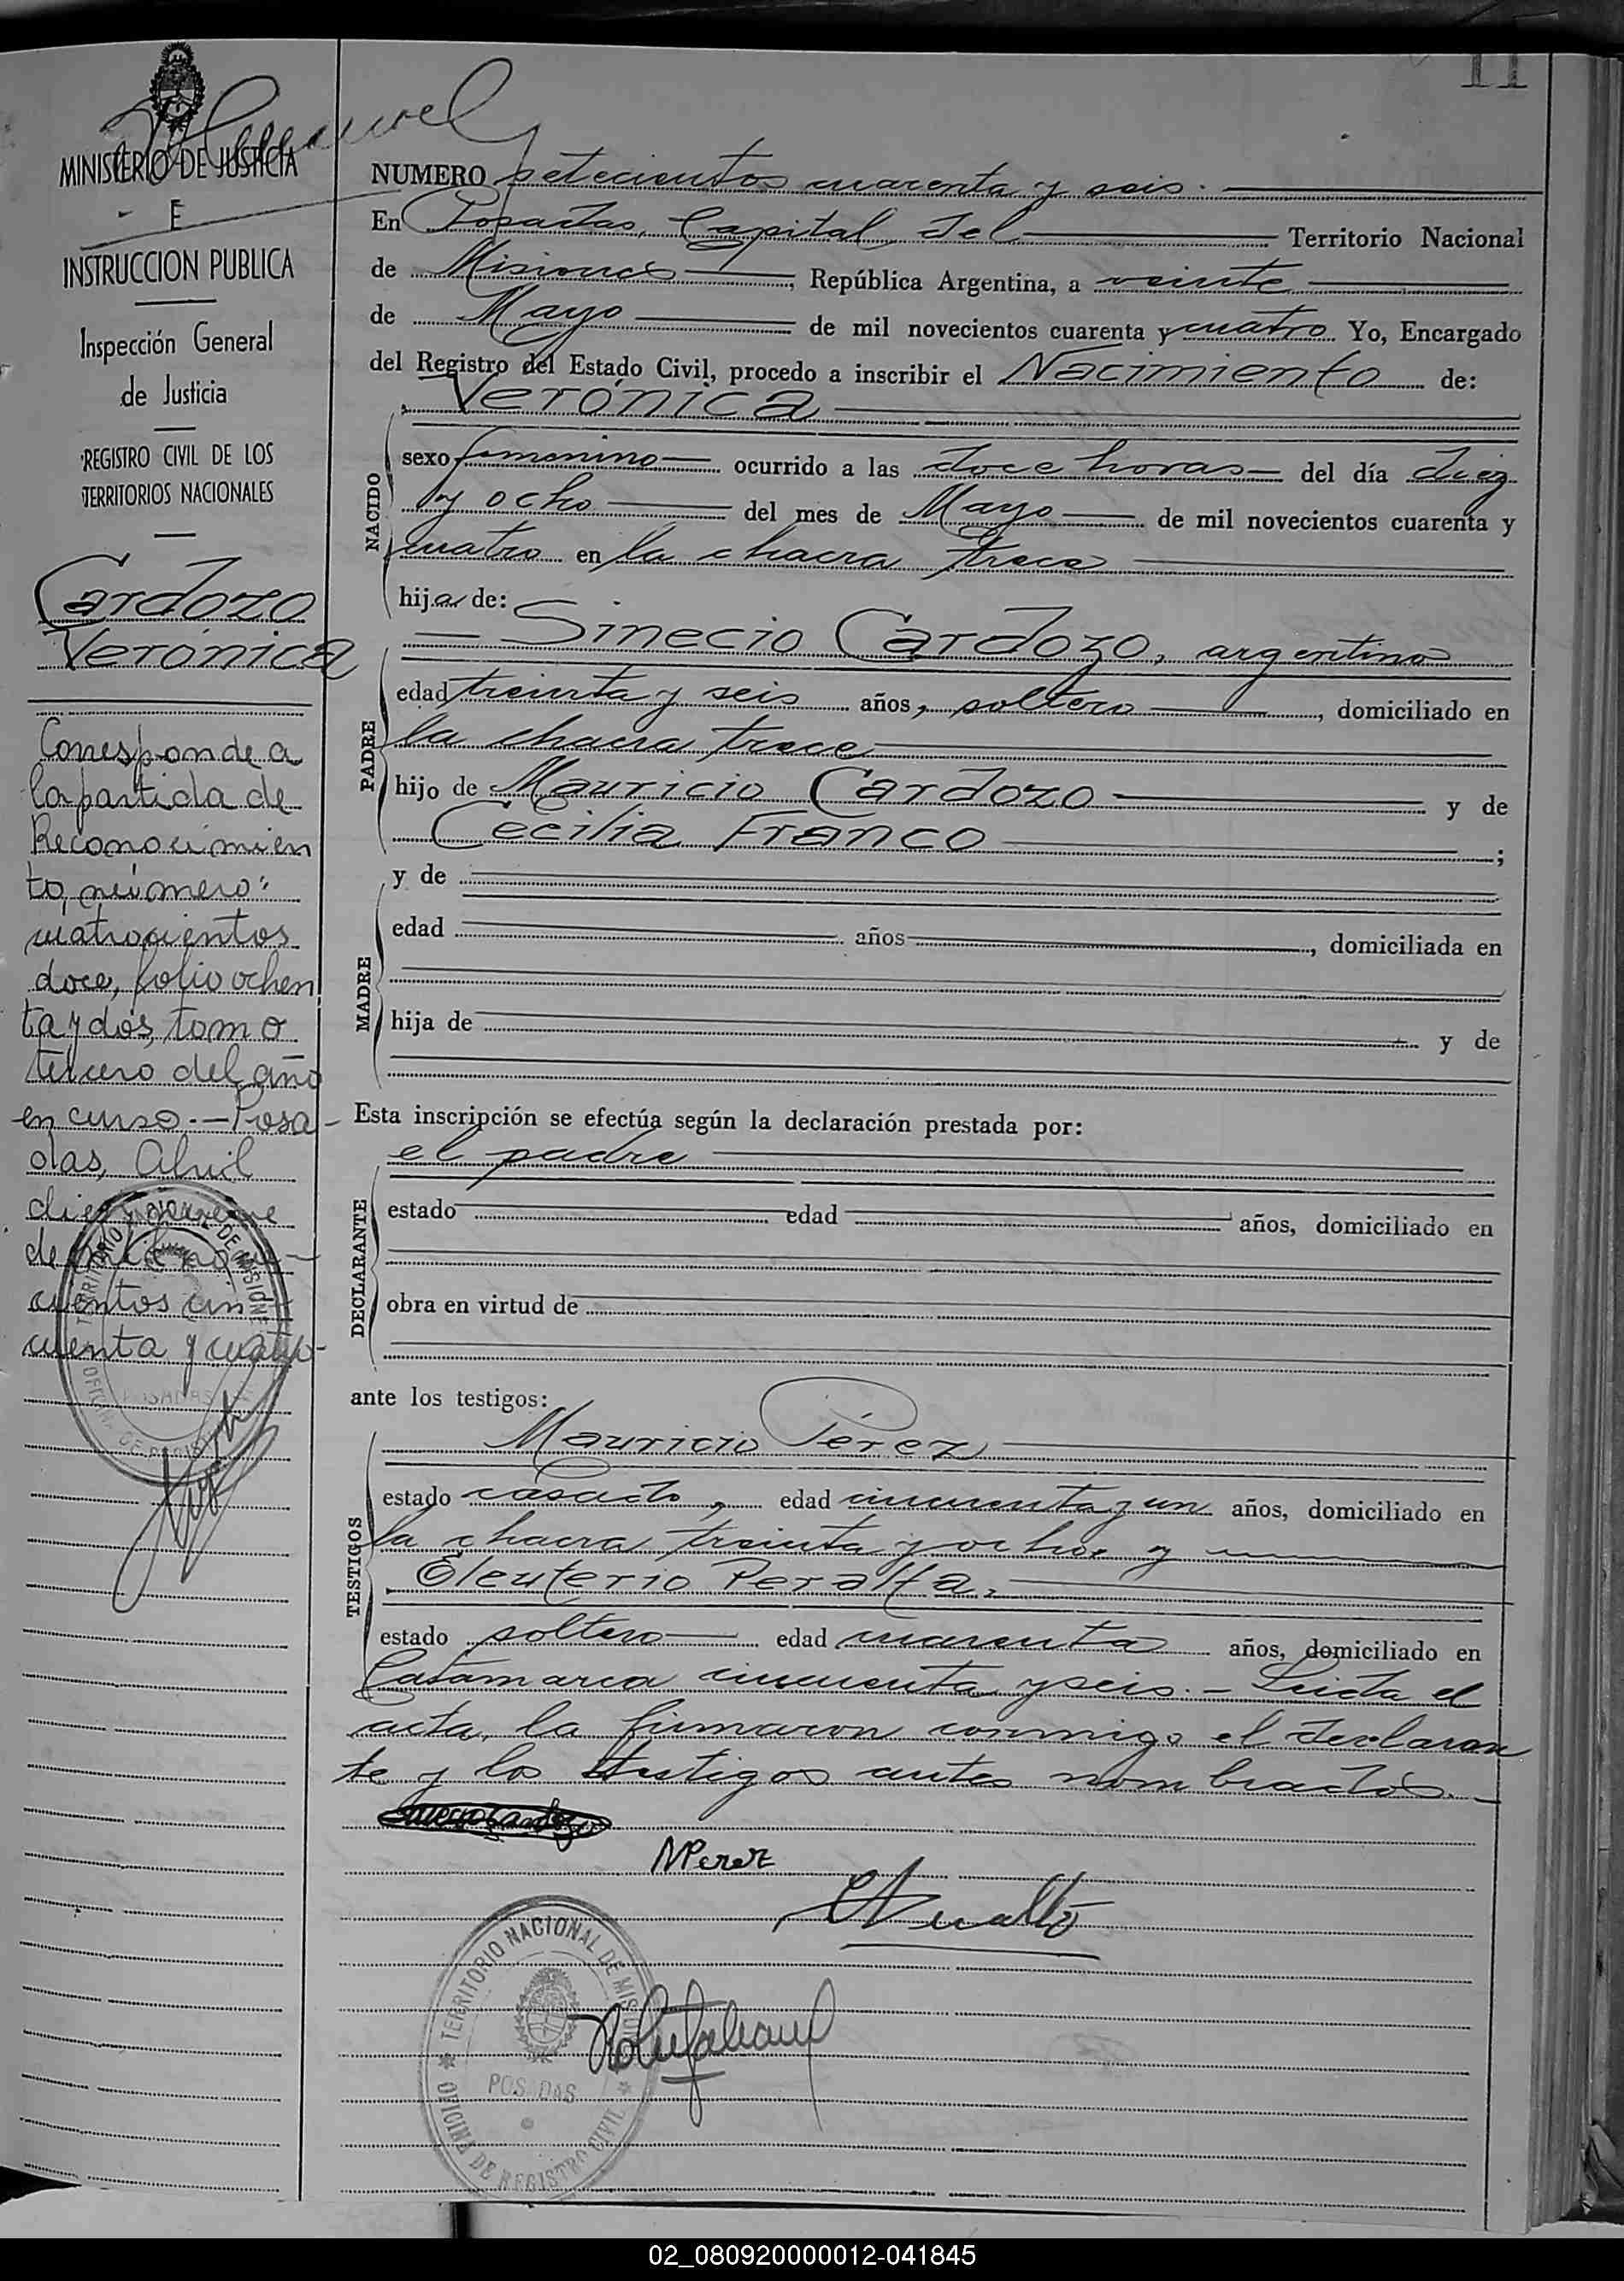 11
MINISTERIO DE JUSTICIA
E
INSTRUCCION PUBLICA
Inspección General
de Justicia
REGISTRO CIVIL DE LOS
TERRITORIOS NACIONALES
Cardozo
Verónica
Corresponde a
la partida de
Reconocimien
to, número:
cuatrocientos
doce, folio ochen
ta y dos, tomo
tercero del año
en curso.- Posa-
das, Abril
diez y nueve
de mil nove-
cientos cin
cuenta y cuatro-
NUMERO setecientos cuarenta y seis.
En Posadas, Capital del Territorio Nacional
de Misiones, República Argentina, a veinte
de Mayo de mil novecientos cuarenta y cuatro Yo, Encargado
del Registro del Estado Civil, procedo a inscribir el Nacimiento de:
Verónica
NACIDO
sexo femenino ocurrido a las doce horas del día diez
y ocho del mes de Mayo de mil novecientos cuarenta y
cuatro en la chacra trece
hija de:
Sinecio Cardozo, argentino
PADRE
edad treinta y seis años, soltero, domiciliado en
la chacra trece
hijo de Mauricio Cardozo y de
Cecilia Franco;
y de
MADRE
edad años, domiciliada en
hija de y de
Esta inscripción se efectúa según la declaración prestada por:
el padre
DECLARANTE
estado edad años, domiciliado en
obra en virtud de
ante los testigos:
Mauricio Pérez
TESTIGOS
estado casado, edad cincuenta y un años, domiciliado en
la chacra treinta y ocho y
Eleuterio Peralta,
estado soltero edad cuarenta años, domiciliado en
Catamarca cincuenta y seis.- Leída el
acta, la firmaron conmigo el declaran
te y los testigos antes nombrados.-
MPerez
TERRITORIO NACIONAL DE MISIONES
POSADAS
OFICINA DE REGISTRO CIVIL
02_080920000012-041845